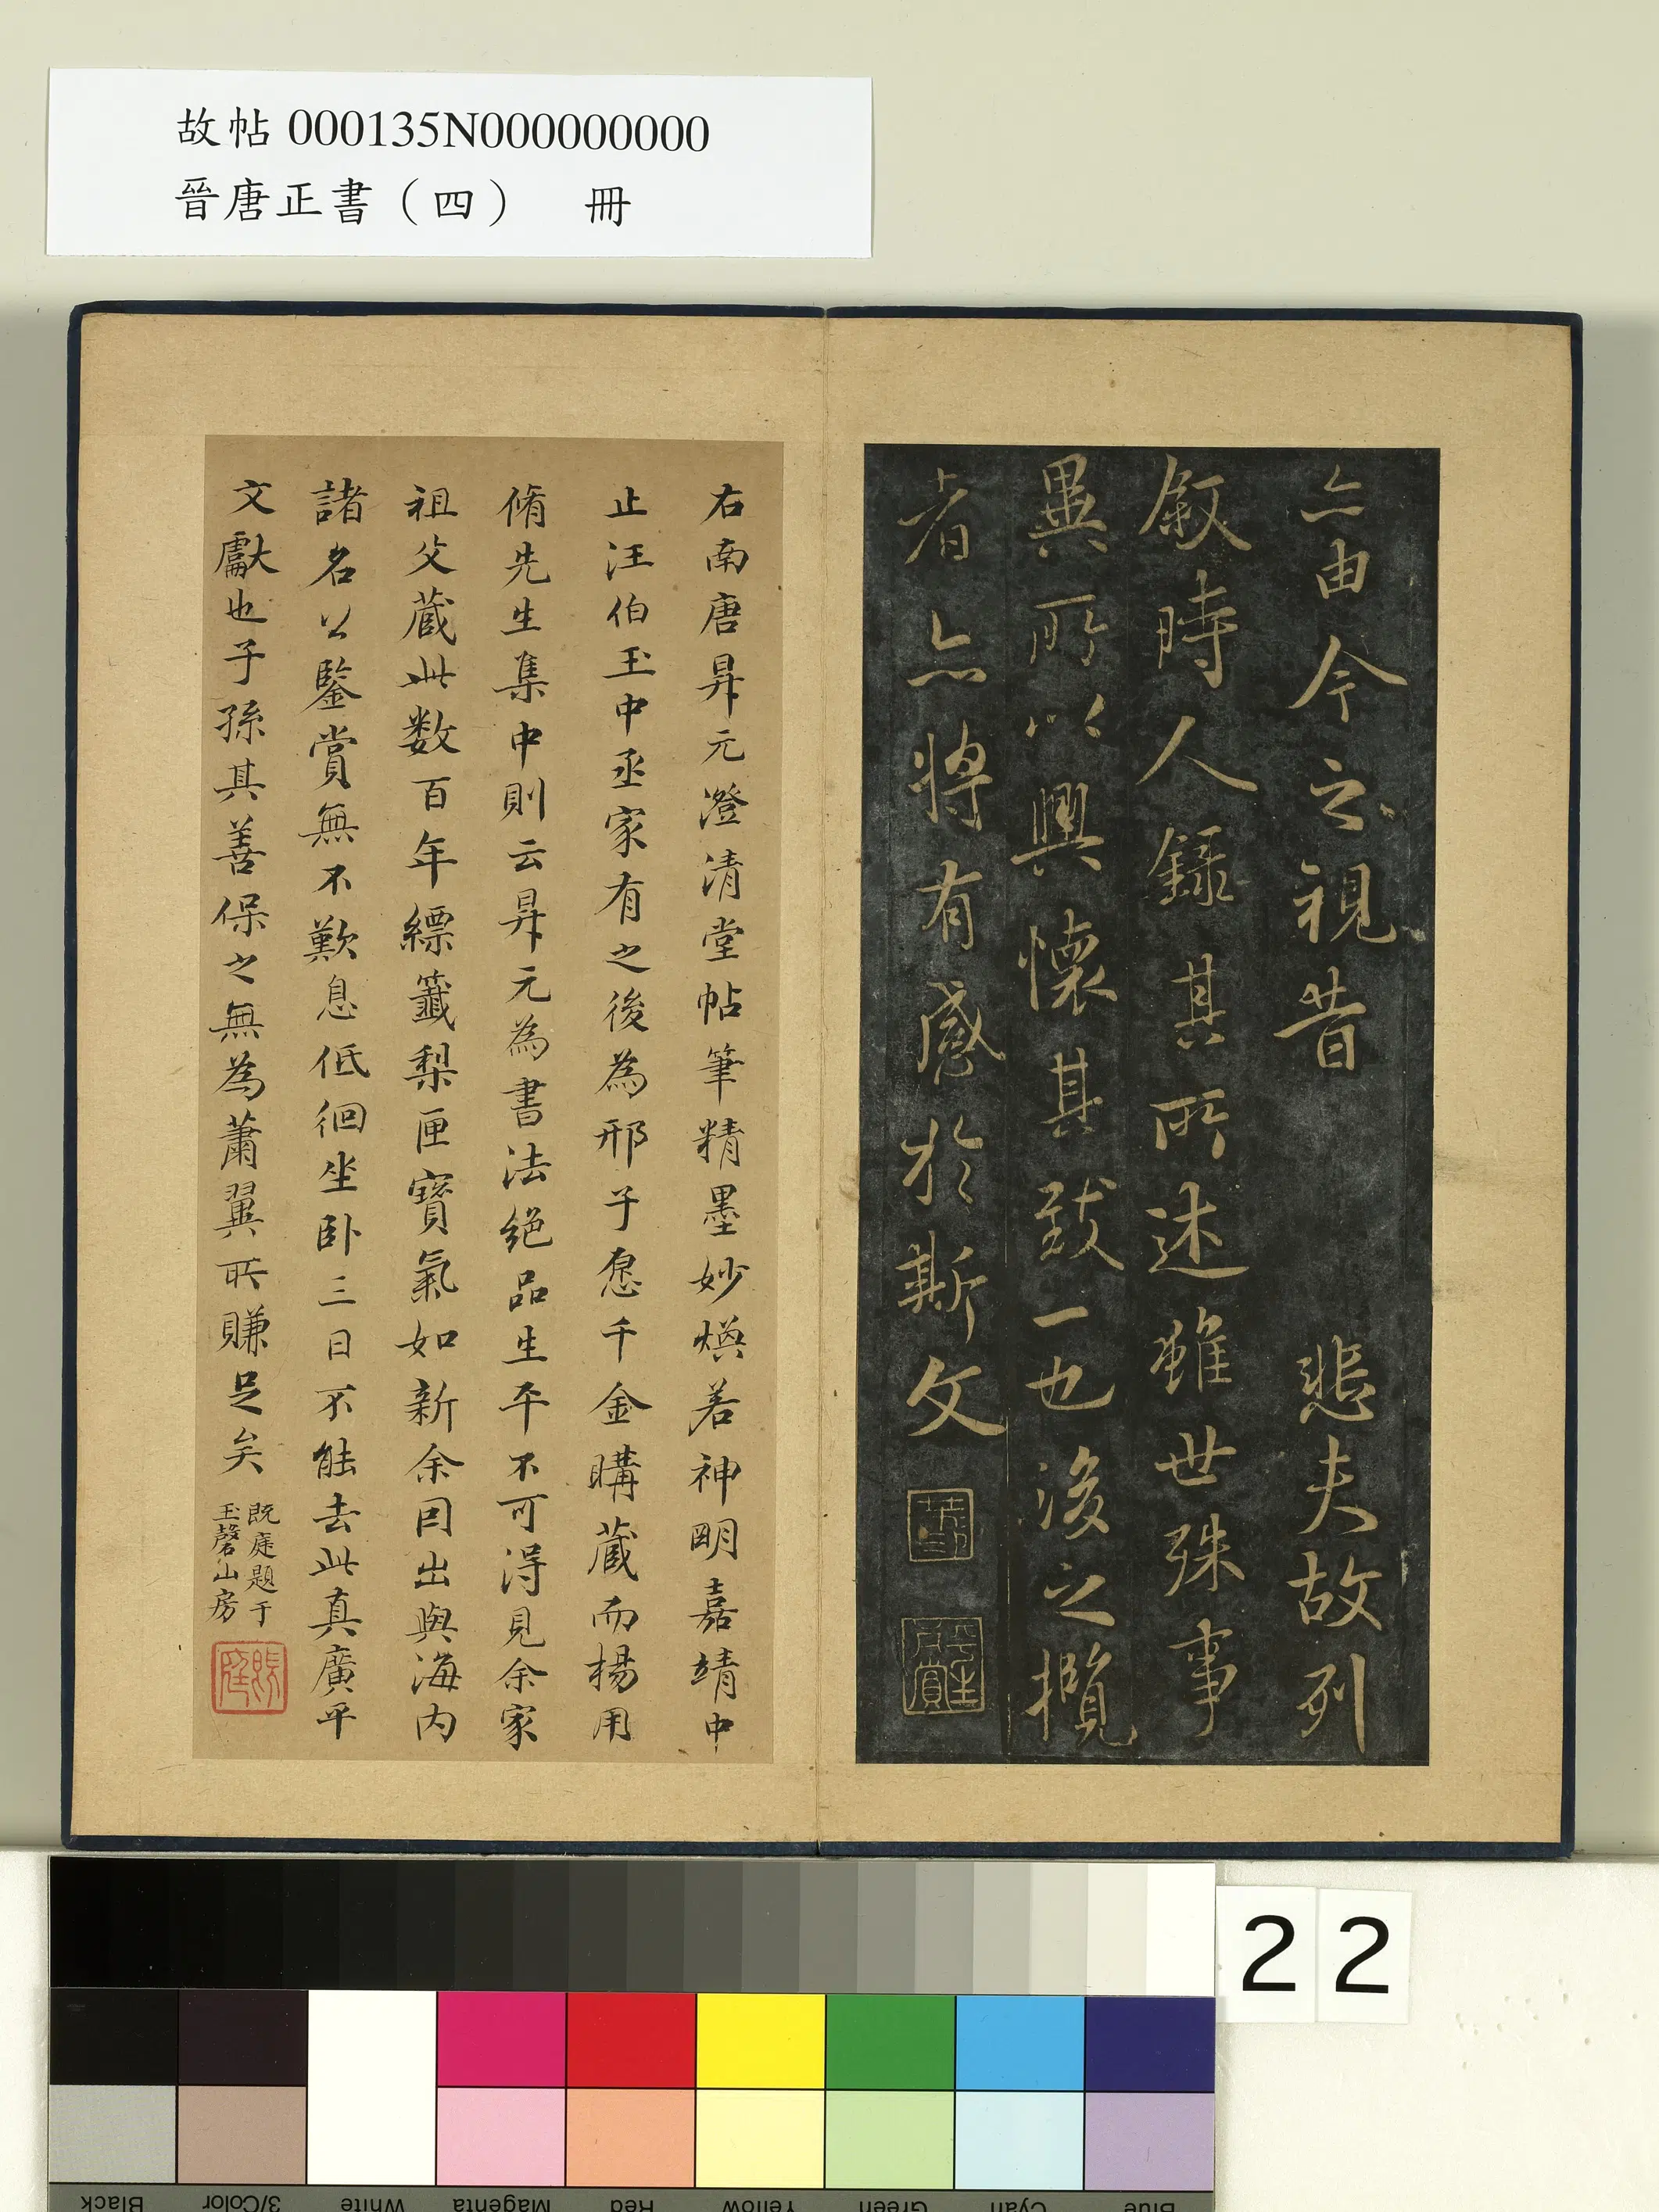 故帖 000135N000000000
晉唐正書（四）　冊
亦由今之視昔悲夫故列
敘時人錄其所述雖世殊事
異所以興懷其致一也後之攬
者亦將有感於斯文
右南唐昇元澄清堂帖筆精墨妙煥若神明嘉靖中
止汪伯玉中丞家有之後為邢子愿千金購藏而楊用
脩先生集中則云昇元為書法絕品生平不可得見余家
祖父藏此数百年縹籤梨匣寶氣如新余因出與海內
諸名公鑒賞無不歎息低徊坐卧三日不能去此真廣平
文獻也子孫其善保之無為蕭翼所賺足矣
既庭題于
玉磬山房
22
Black
3/Color
White
Magenta
Red
Yellow
Green
Cyan
Blue